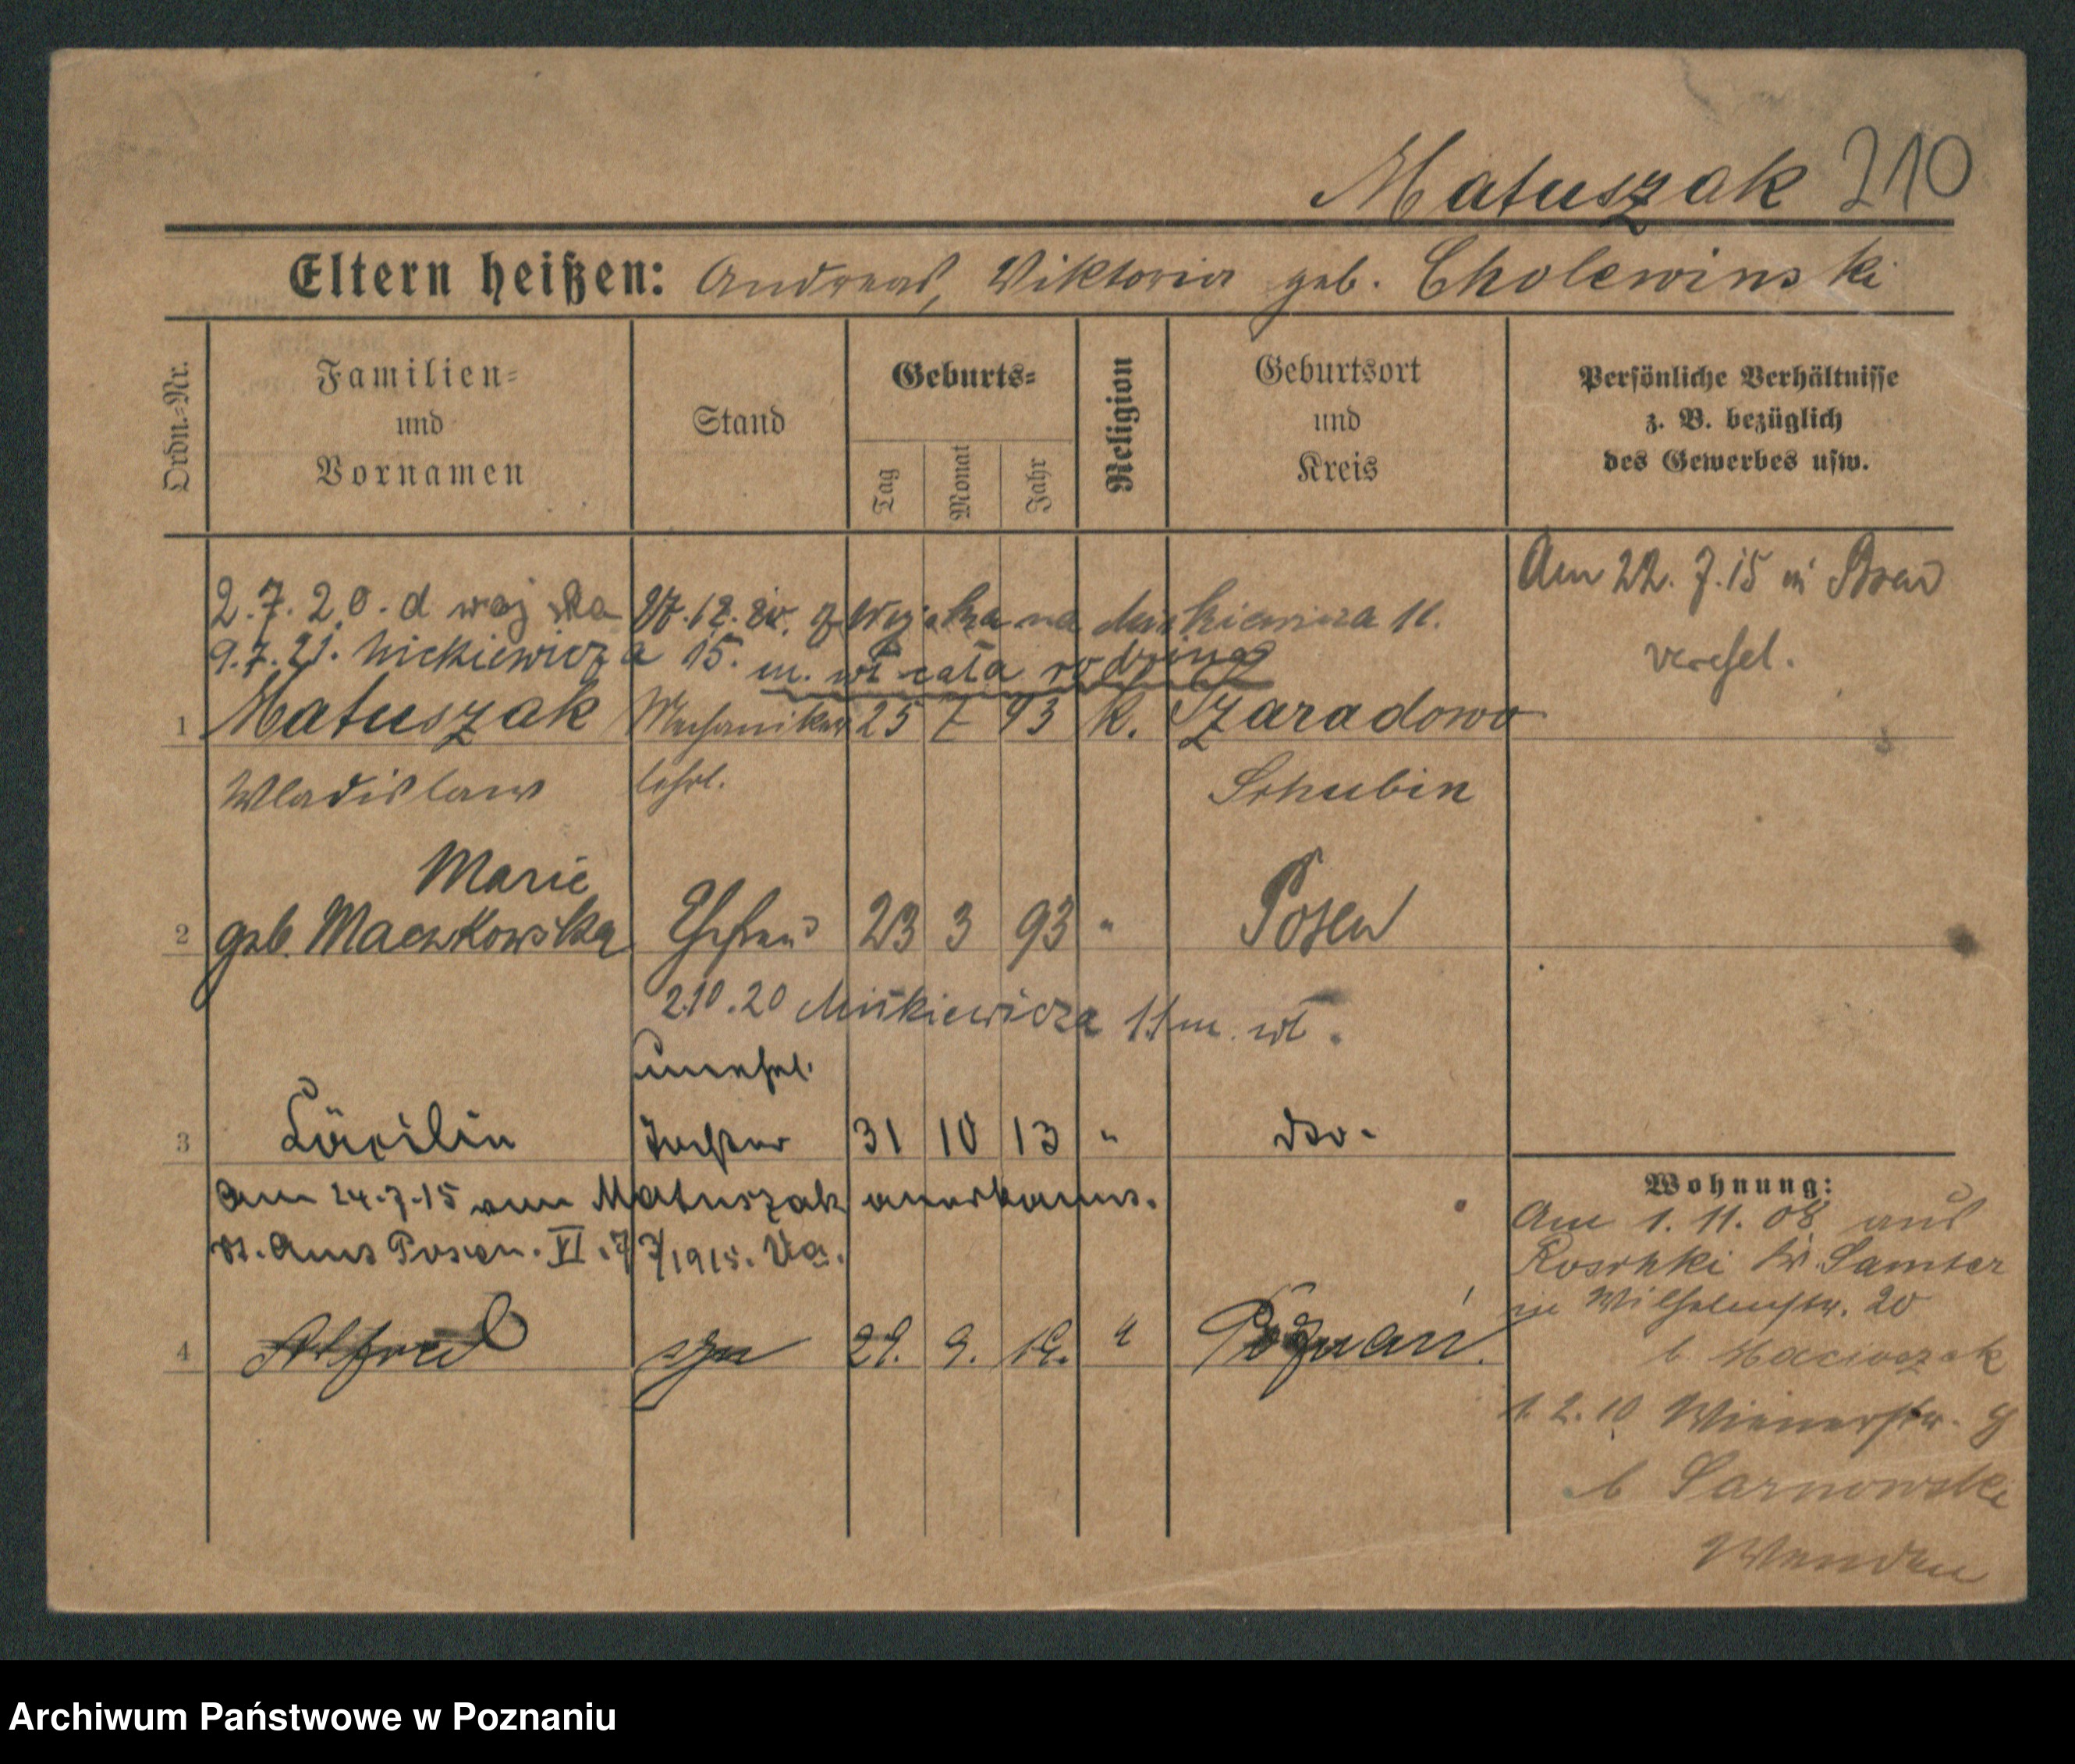 Matuszak 210
Eltern heißen: Andreas, Viktoria geb. Cholewinski
Ordn.=Nr.
Familien=
und
Vornamen
Stand
Geburts=
Tag
Monat
Jahr
Religion
Geburtsort
und
Kreis
Persönliche Verhältnisse
z. B. bezüglich
des Gewerbes usw.
2.7.20. d wojska z wojska na Mickiewicza 11.
9.7.21. Mickiewicza 15. m. wł cała rodzina
Am 22.7.15 in Posen
verehel.
1 Matuszak Mechaniker 25 7 93 K. Szaradowo
Wladislaw lehrl. Schubin
Marie
2 geb. Mackowska Ehefrau 23 3 93 " Posen
2.10.20 Mickiewicza 11 m. wł.
unehel.
3 Cäcilie Tochter 31 10 13 " dto.
Am 24.7.15 vom Matuszak anerkannt.
St. Amt Posen. VI. 1915.
4 Alfred syn 29. 9. 19. " Poznań.
Wohnung:
Am 1.11.08 aus
Roschki Kr. Samter
in Wilhelmstr. 20
b. Maciaszek
1.2.10 Wienerstr.
b Sarnowski
Wenden
Archiwum Państwowe w Poznaniu